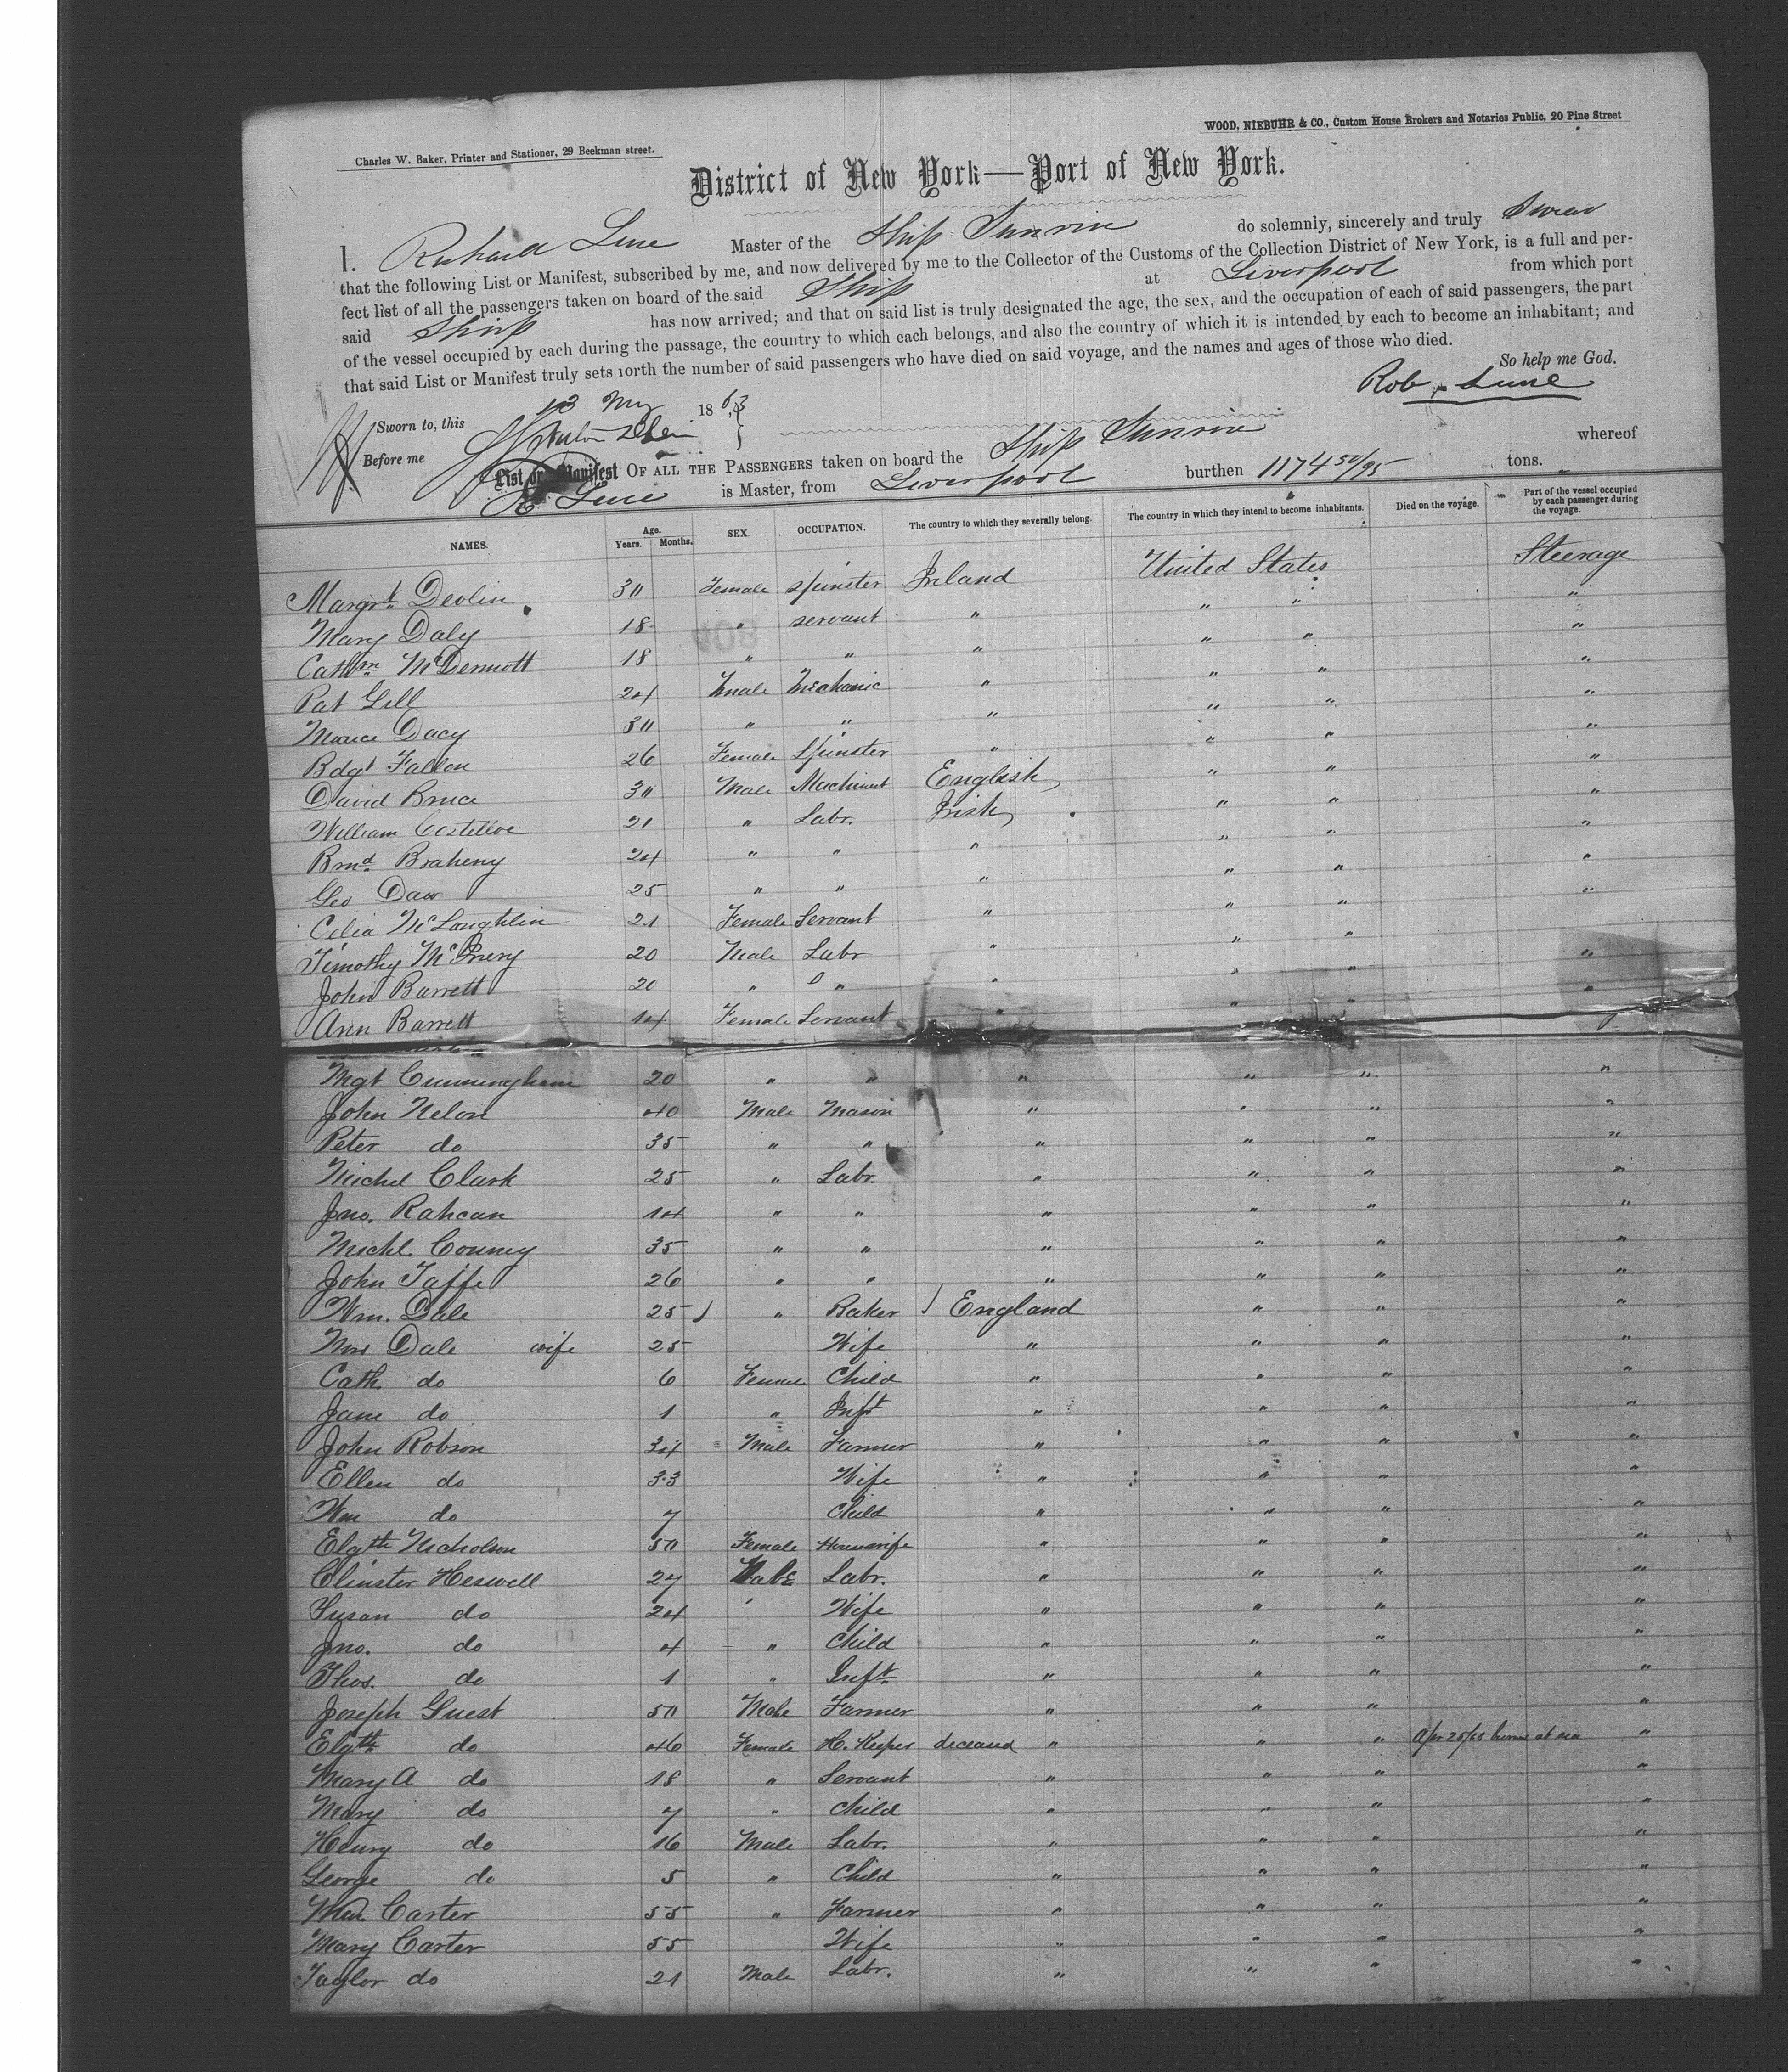 WOOD, NIEBUHR & CO., Custom House Brokers and Notaries Public, 20 Pine Street
Charles W. Baker, Printer and Stationer, 29 Beekman street.
District of New York—Port of New York.
I. Richard Luce Master of the Ship Sunrise do solemnly, sincerely and truly Swear
that the following List or Manifest, subscribed by me, and now delivered by me to the Collector of the Customs of the Collection District of New York, is a full and per-
fect list of all the passengers taken on board of the said Ship at Liverpool from which port
said Ship has now arrived; and that on said list is truly designated the age, the sex, and the occupation of each of said passengers, the part
of the vessel occupied by each during the passage, the country to which each belongs, and also the country of which it is intended by each to become an inhabitant; and
that said List or Manifest truly sets forth the number of said passengers who have died on said voyage, and the names and ages of those who died.
So help me God.
Sworn to, this 13 May 1863
Before me
List or Manifest OF ALL THE PASSENGERS taken on board the Ship Sunrise whereof
R Luce is Master, from Liverpool burthen 1174 50/95 tons.
NAMES. Age. Years. Months. SEX. OCCUPATION. The country to which they severally belong. The country in which they intend to become inhabitants. Died on the voyage. Part of the vessel occupied by each passenger during the voyage.
Margrt. Devlin 30 Female Spinster Ireland United States Steerage
Mary Daly 18 " servant " " " "
Cathrn McDermott 18 " " " " " "
Pat Gill 24 male Mechanic " " " "
Dacy 30 " " " " " "
Bdgt Fallon 26 Female Spinster " " " "
David Bruce 30 Male Machinist English " " "
William Costelloe 21 " Labr. Irish " " "
Brnd. Braheny 24 " " " " " "
Geo Daw 25 " " " " " "
Celia McLoughlin 21 Female Servant " " " "
Timothy 20 Male Labr " " " "
John Barrett 20 " " " " " "
Ann Barrett 14 Female Servant " " " "
Mgt Cunningham 20 " " " " " "
John Nelon 40 Male Mason " " " "
Peter do 35 " " " " " "
Michel Clark 25 " Labr. " " " "
Jno. Rahcan 14 " " " " " "
Michl. Conney 35 " " " " " "
John Taffe 26 " " " " " "
Wm. Dale 25 " Baker England " " "
Mrs Dale wife 25 Wife " " " "
Cath. do 6 Female Child " " " "
Jane do 1 " Inft " " " "
John Robson 34 Male Farmer " " " "
Ellen do 33 Wife " " " "
Wm do 7 Child " " " "
Elgth Nicholson 50 Female Housewife " " " "
Clinster Heswell 27 Male Labr. " " " "
Susan do 24 ' Wife " " " "
Jno. do 4 " Child " " " "
Thos. do 1 " Inft. " " " "
Joseph Guest 50 Male Farmer " " " "
Elgth do 46 Female H. Keeper deceased " " " Apr 25/63 at sea "
Mary A do 18 " Servant " " " "
Mary do 7 " Child " " " "
Henry do 16 Male Labr. " " " "
George do 5 " Child " " " "
Wm Carter 55 " Farmer " " " "
Mary Carter 55 Wife " " " "
Taylor do 21 Male Labr. " " " "